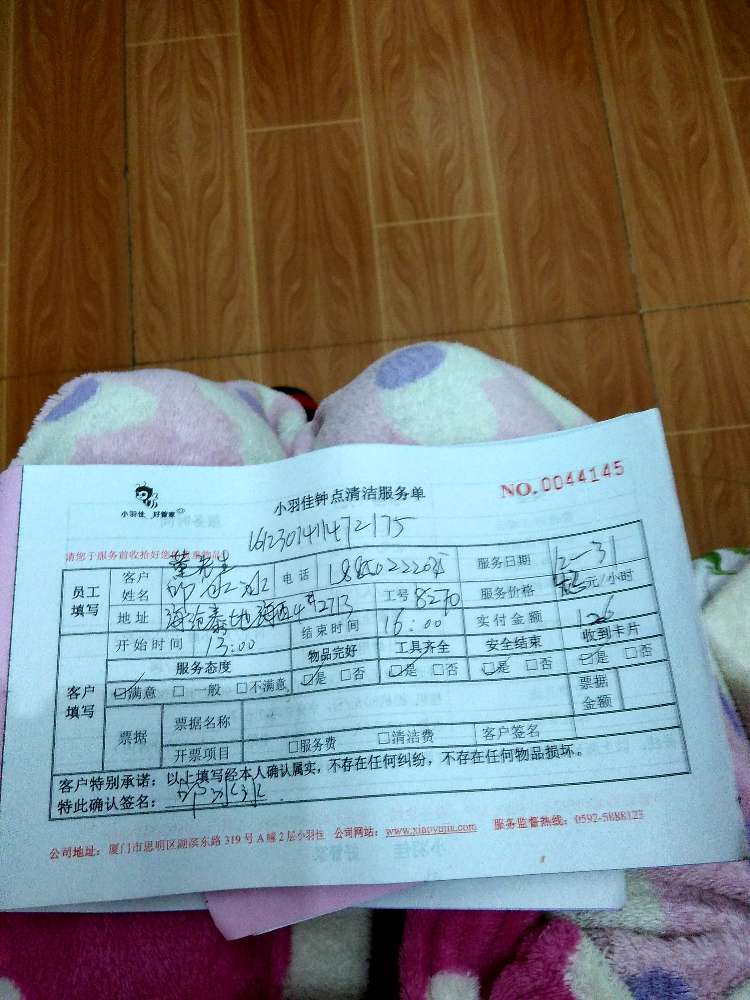 小羽佳 好管家
小羽佳钟点清洁服务单
NO.0044145
1612301411472175
请您于服务前收拾好您的贵重物品
员工填写 客户姓名 电话 服务日期 12-31
地址 工号 8270 服务价格 元/小时
开始时间 13:00 结束时间 16:00 实付金额 126
客户填写 服务态度 物品完好 工具齐全 安全结束 收到卡片
☑满意 □一般 □不满意 ☑是 □否 ☑是 □否 ☑是 □否 ☑是 □否
票据 票据名称 票据金额
开票项目 □服务费 □清洁费 客户签名
客户特别承诺：以上填写经本人确认属实，不存在任何纠纷，不存在任何物品损坏。
特此确认签名：
公司地址：厦门市思明区湖滨东路 319 号 A 幢 2 层小羽佳 公司网站：www.xiaoyujia.com 服务监督热线：0592-5888123